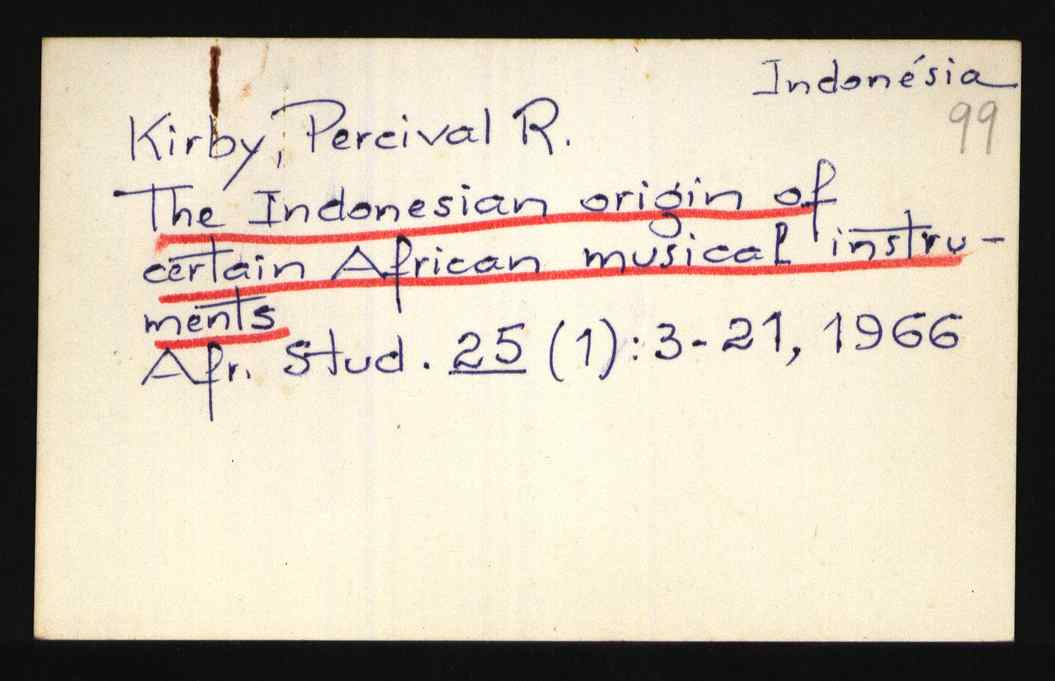 Indonésia
99
Kirby, Percival R.
The Indonesian origin of
certain African musical instru-
ments
Afr. Stud. 25 (1): 3-21, 1966